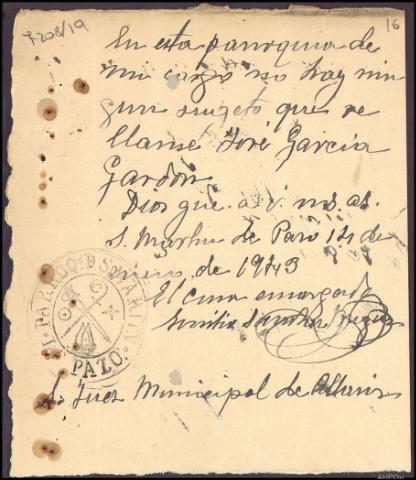 7208/19
16
En esta parroquia de
mi cargo no hay nin
gun sugeto que se
llame José García
Gardón
Dios gue. a V. ms. as.
S. Martin de Pazo 14 de
de 1943
El cura encargado
Emilio
PARROQ. D S. MARTIN
PAZO
Sr. Juez Municipal de Allariz